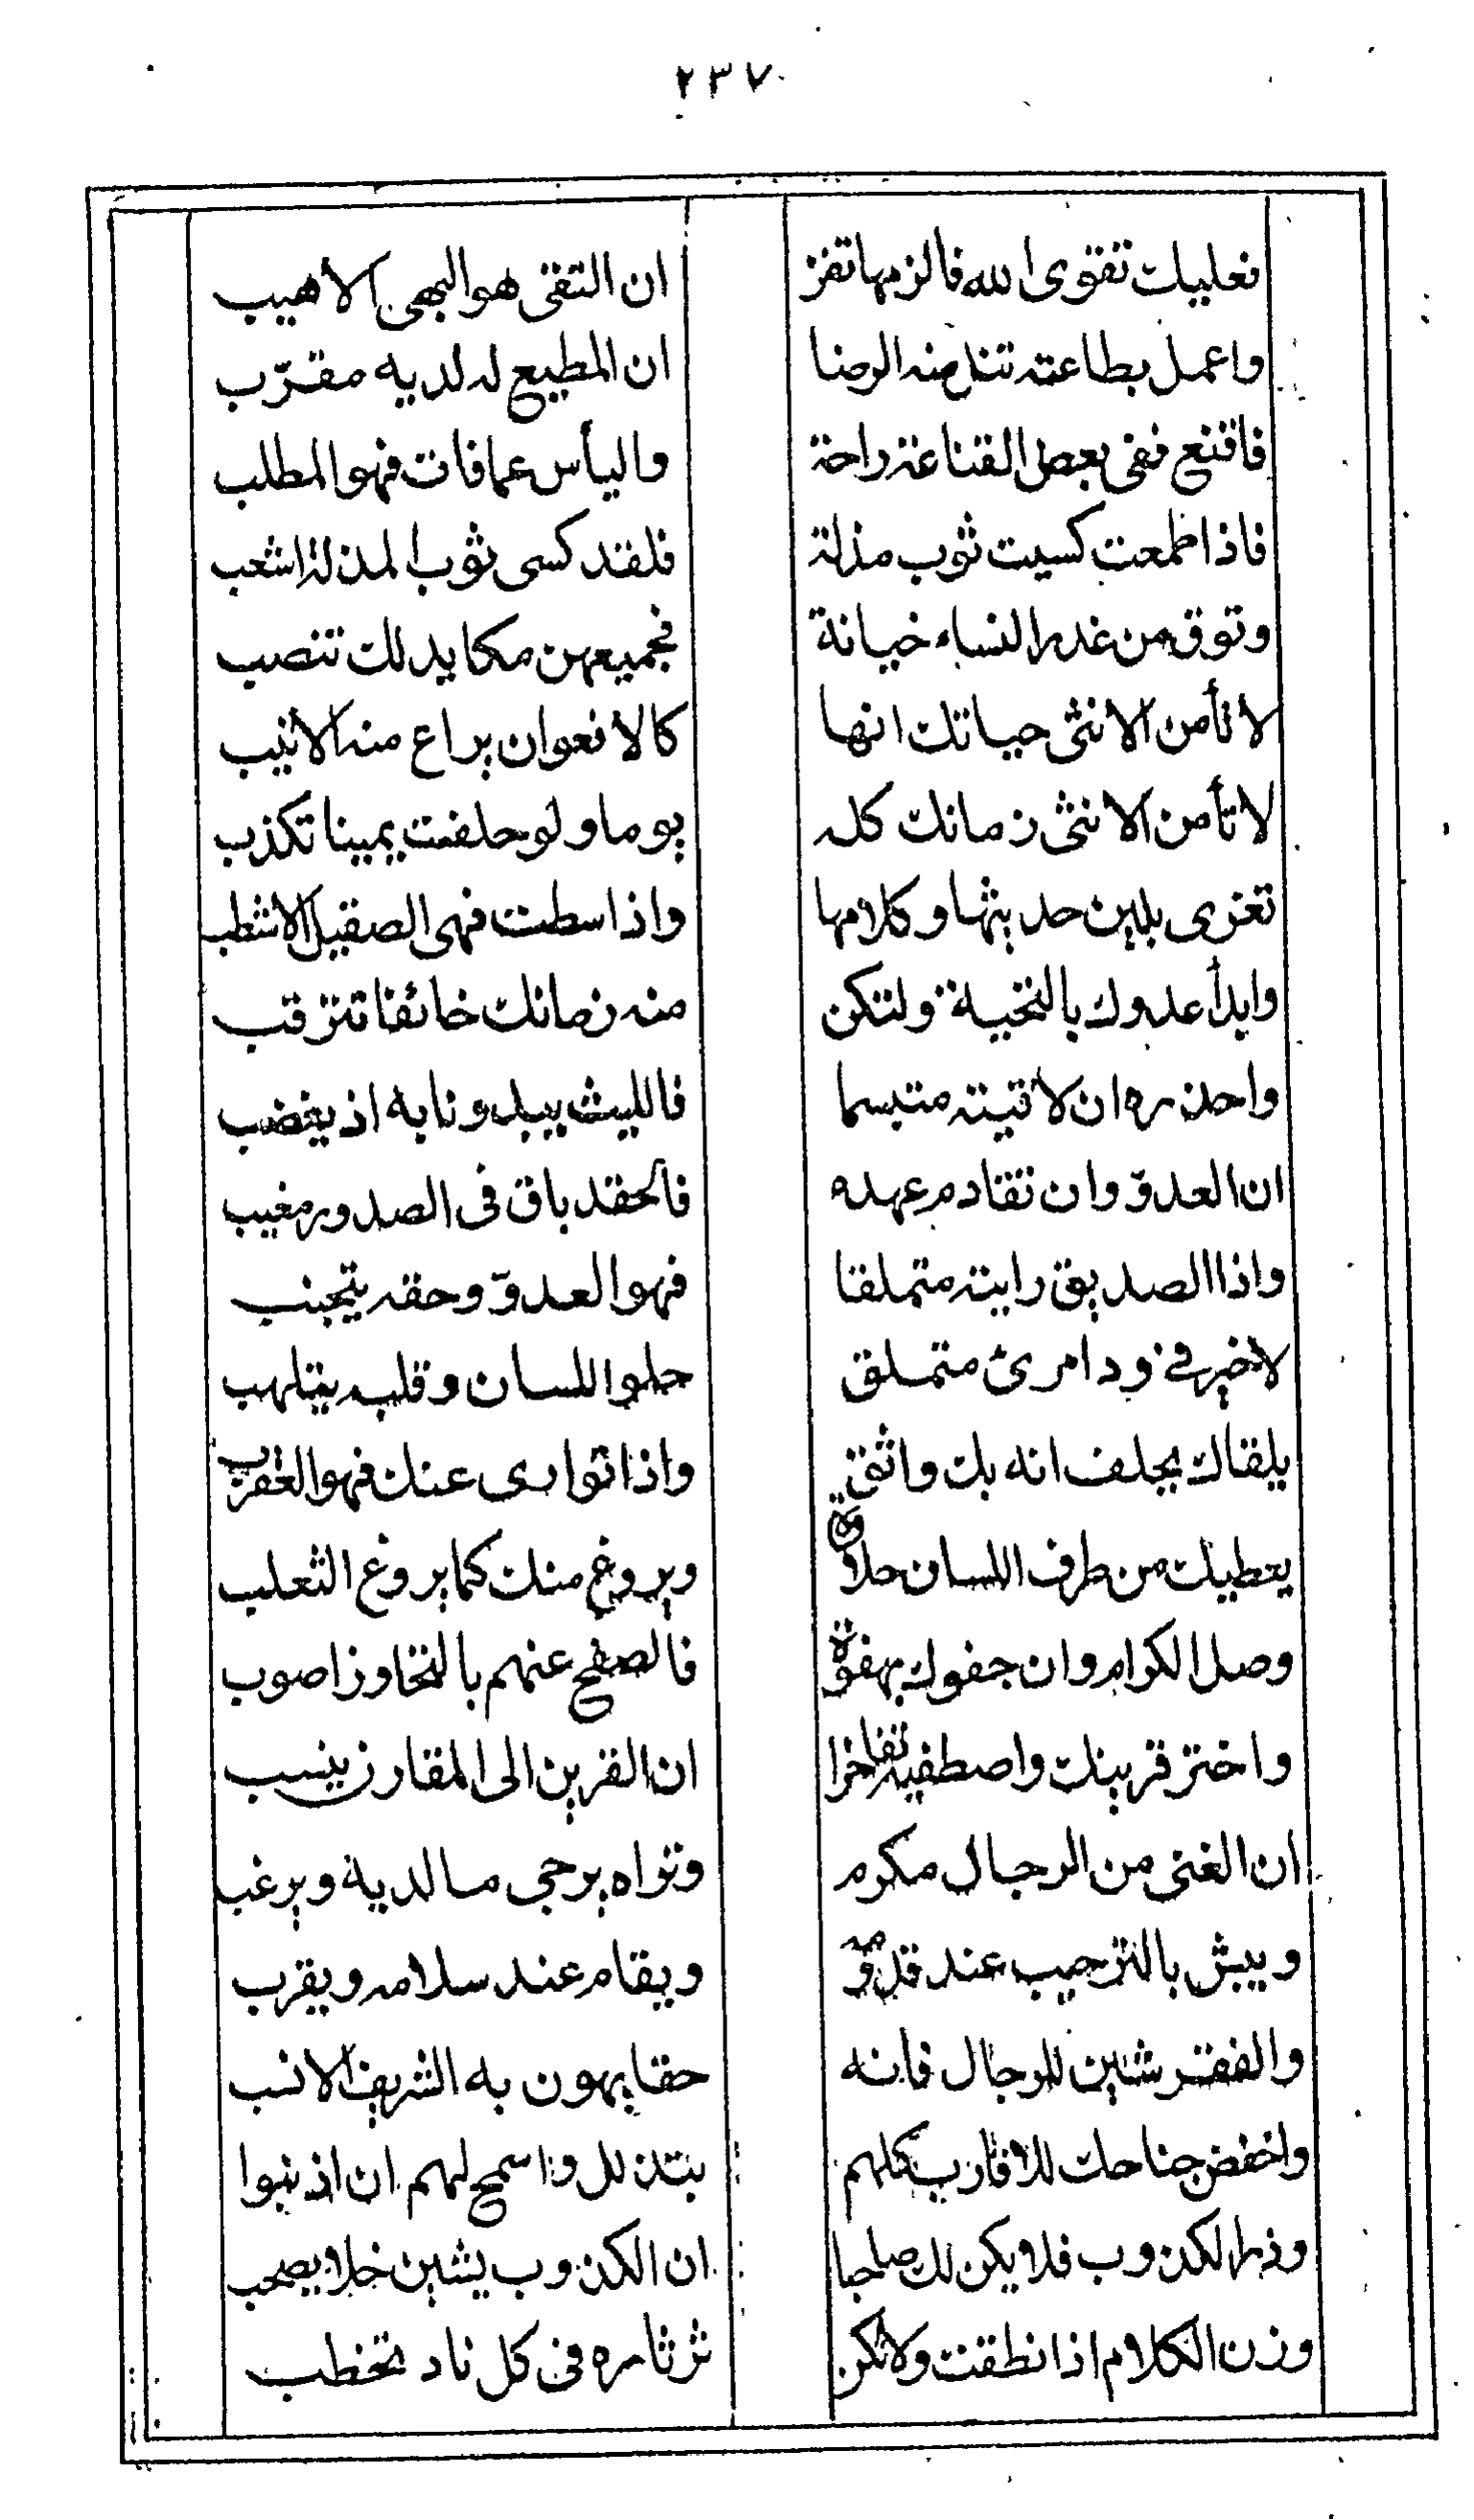 ٢٣٧
فعليك تقوى الله فالزمها تفز ان التقى هو البهى الاهيب
واعمل بطاعته تنل منه الرضا ان المطيع له لديه مقرّب
فاقنع ففى بعض القناعة راحة واليأس عما فات فهو المطلب
فاذا طمعت كسيت ثوب مذلة فلقد كسى ثوب المذلة اشعب
وتوق من غدر النساء خيانة فجميعهن مكايد لك تنصب
لا تأمن الانثى حياتك انها كالافعوان يراع منه الانيب
لا تأمن الانثى زمانك كله يوما ولو حلفت يمينا تكذب
تغرى بلين حديثها وكلامها واذا سطت فهى الصقيل الاشطب
وابدأ عدوك بالتحية ولتكن منه زمانك خائفا تترقب
واحذره ان لاقيته متبسما فالليث يبدو نابه اذ يغضب
ان العدوّ وان تقادم عهده فالحقد باق فى الصدور مغيب
واذا الصديق رايته متملقا فهو العدوّ وحقه يتجنب
لاخير فى ود امرئ متملق حلو اللسان وقلبه يتلهب
يلقاك يحلف انه بك واثق واذا توارى عنك فهو العقرب
يعطيك من طرف اللسان حلاوة ويروغ منك كما يروغ الثعلب
وصل الكرام وان جفوك بهفوة فالصفح عنهم بالتجاوز اصوب
واختر قرينك واصطفيه تفاخرا ان القرين الى المقارن ينسب
ان الغنى من الرجال مكرم وتراه يرجى ما لديه ويرغب
ويبش بالترحيب عند قدومه ويقام عند سلامه ويقرب
والفقر شين للرجال فانه حقا يهون به الشريف الانسب
واخفض جناحك للاقارب كلهم بتذلل واسمح لهم ان اذنبوا
وذر الكذوب فلا يكن لك صاحبا ان الكذوب يشين خلا يصحب
وزن الكلام اذا نطقت ولا تكن ثرثاره فى كل ناد تخطب